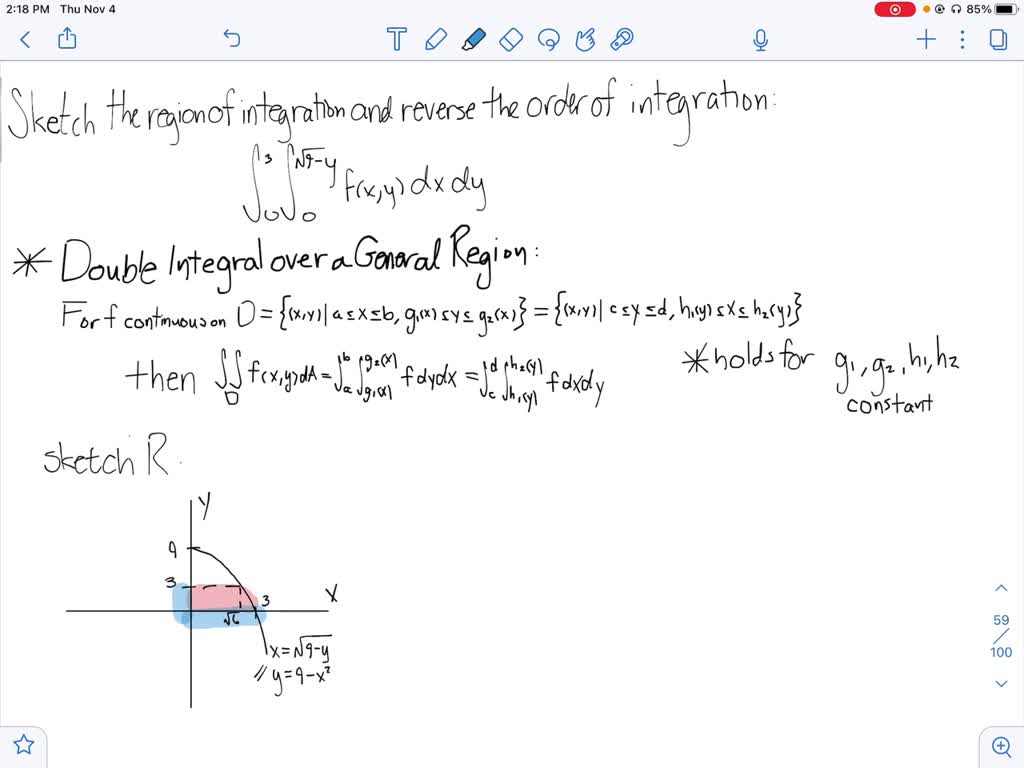 2:18 PM Thu Nov 4
85%
Sketch the region of integration and reverse the order of integration:
∫₀³ ∫₀^√9-y f(x,y) dx dy
* Double Integral over a General Region:
For f continuous on D = {(x,y) | a ≤ x ≤ b, g₁(x) ≤ y ≤ g₂(x)} = {(x,y) | c ≤ y ≤ d, h₁(y) ≤ x ≤ h₂(y)}
then ∬_D f(x,y) dA = ∫_a^b ∫_g₁(x)^g₂(x) f dy dx = ∫_c^d ∫_h₁(y)^h₂(y) f dx dy
* holds for g₁, g₂, h₁, h₂
constant
sketch R.
y
9
3
3
x
√6
x = √9-y
// y = 9 - x²
59
/
100